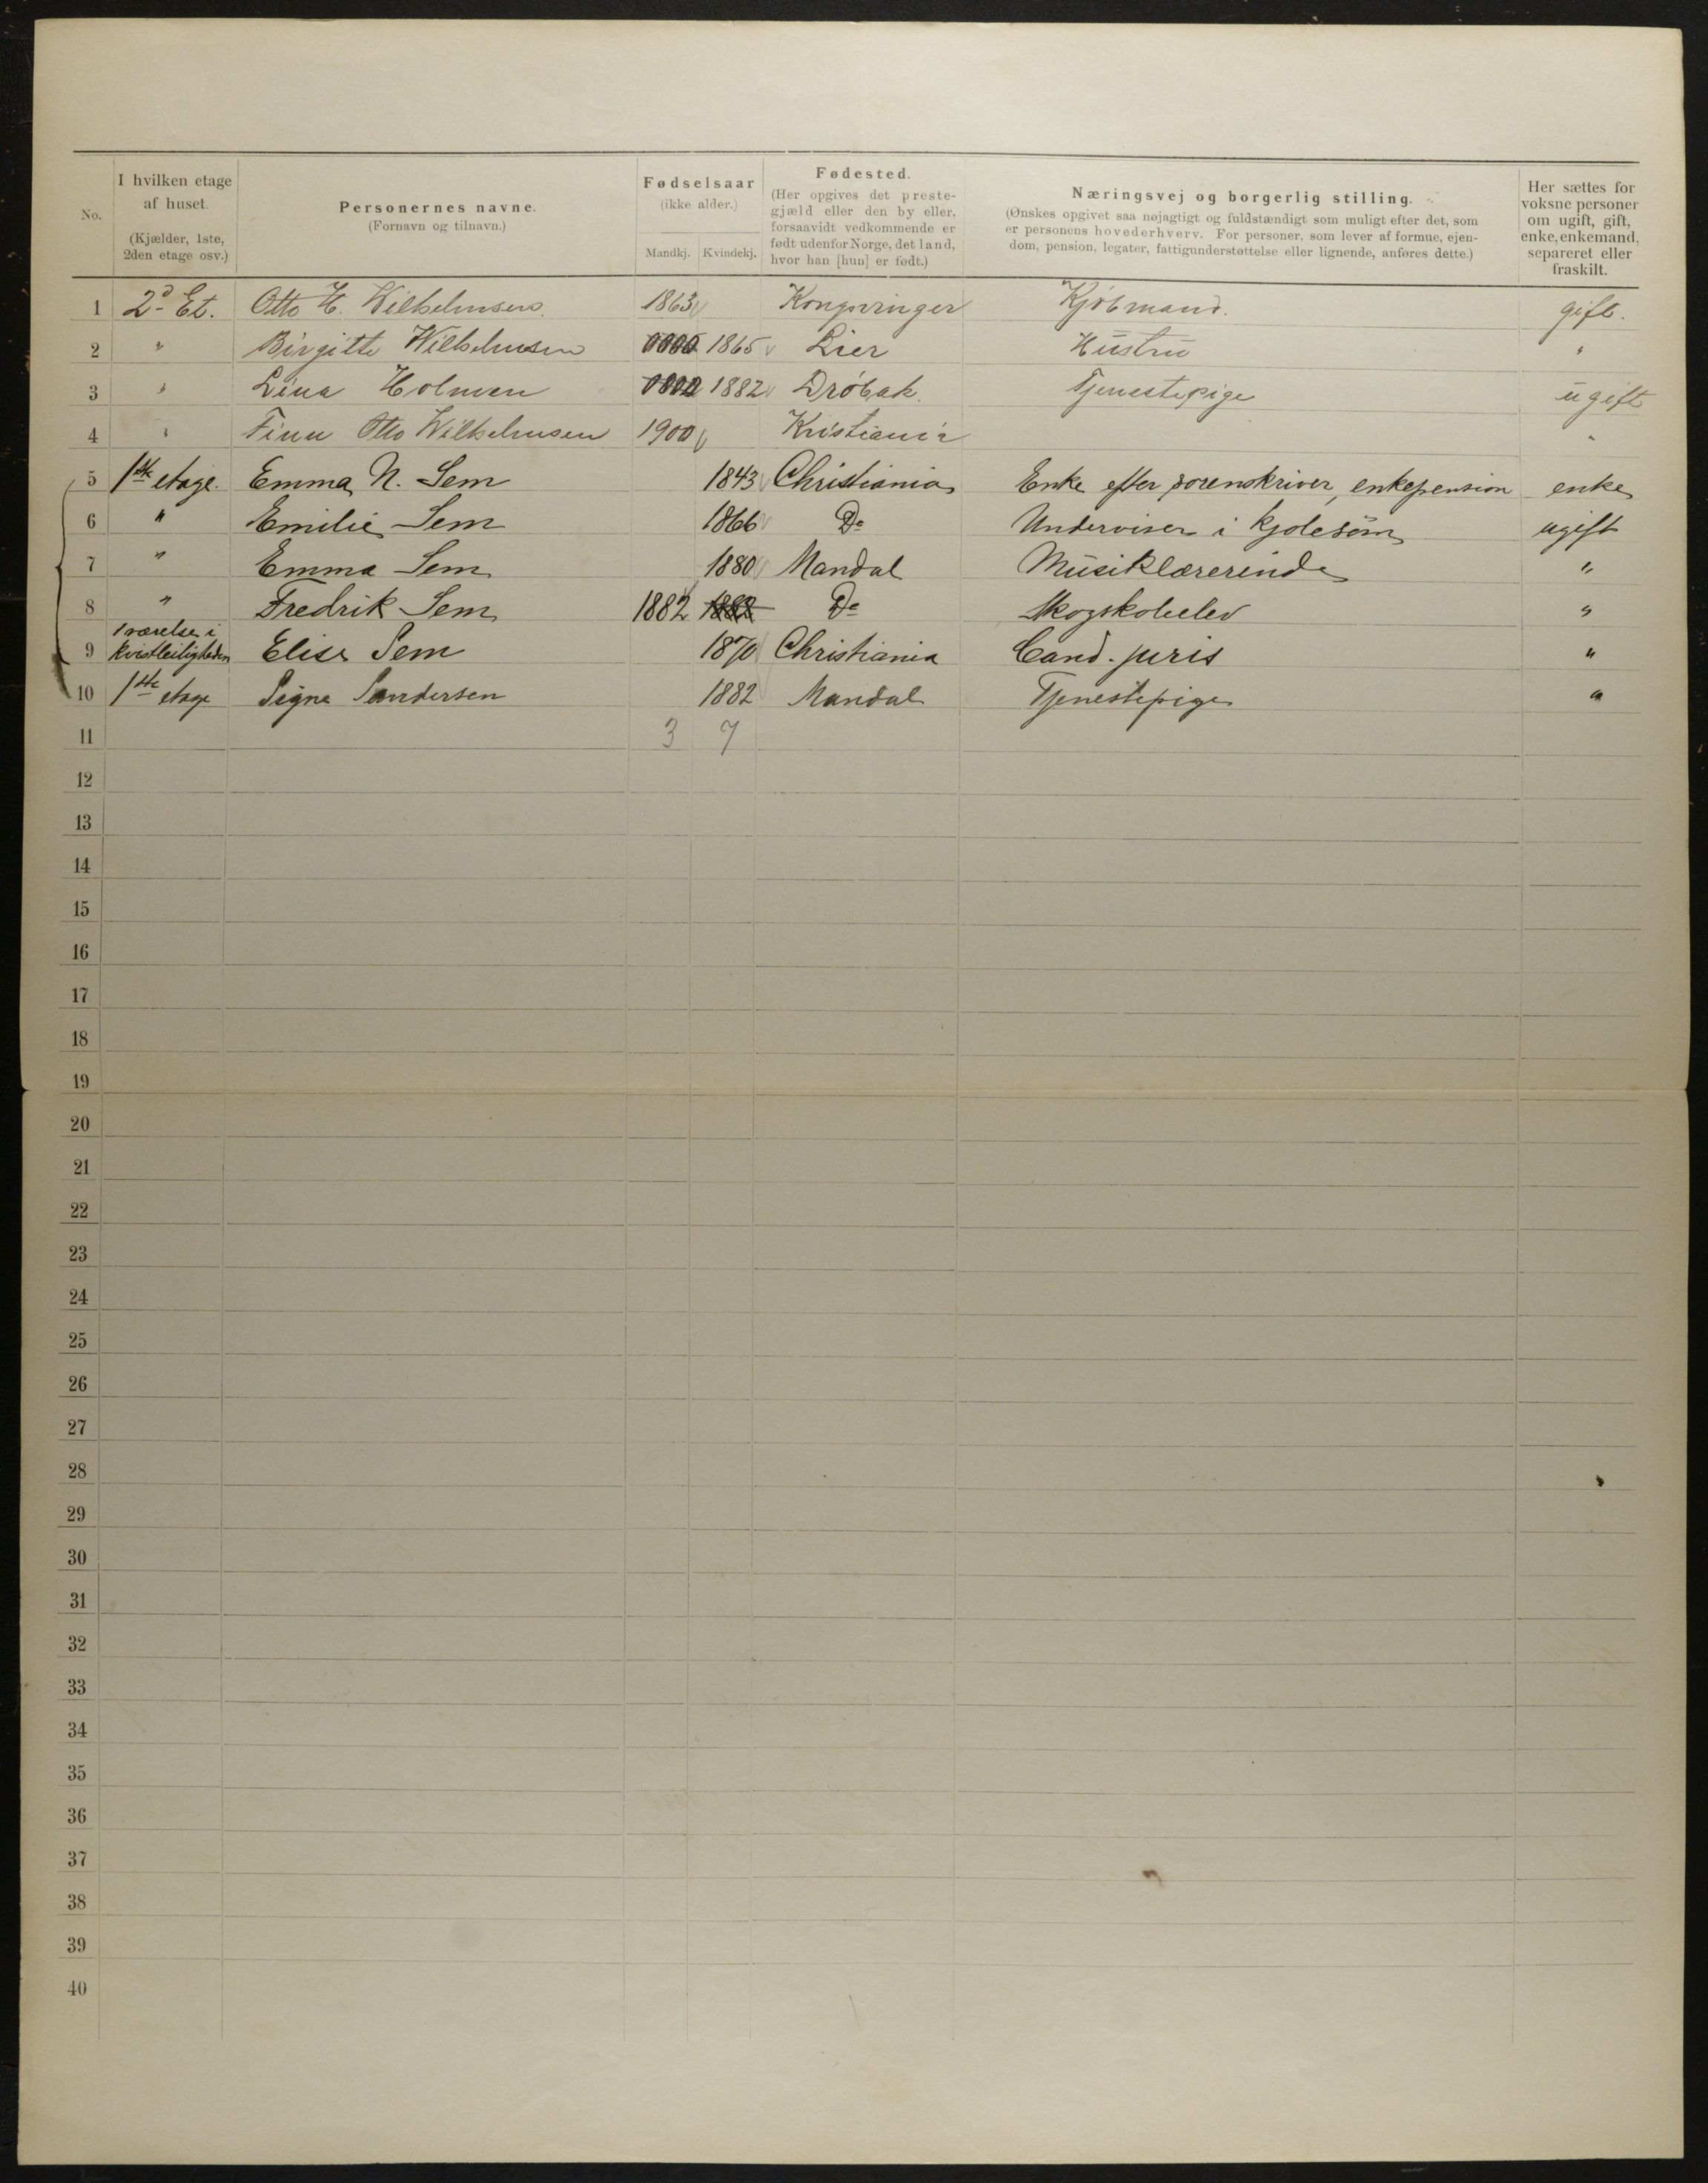 No.
I hvilken etage af huset. (Kjælder, 1ste, 2den etage osv.)
Personernes navne. (Fornavn og tilnavn.)
Fødselsaar (ikke alder.)
Mandkj. Kvindekj.
Fødested. (Her opgives det prestegjæld eller den by eller, forsaavidt vedkommende er født udenfor Norge, det land, hvor han [hun] er født.)
Næringsvej og borgerlig stilling. (Ønskes opgivet saa nøjagtigt og fuldstændigt som muligt efter det, som er personens hovederhverv. For personer, som lever af formue, ejendom, pension, legater, fattigunderstøttelse eller lignende, anføres dette.)
Her sættes for voksne personer om ugift, gift, enke, enkemand, separeret eller fraskilt.
1 2d Et. Otto H. Wilhelmsen. 1863 Kongsvinger Kjøbmand. gift.
2 " Birgitte Wilhelmsen 1865 Lier Hustru "
3 " Lina Holmen 1882 Drøbak. Tjenestepige ugift
4 " Finn Otto Wilhelmsen 1900 Kristiania "
5 1ste etage. Emma N. Sem 1843 Christiania Enke efter sorenskriver, enkepension enke
6 " Emilie Sem 1866 Do Underviser i kjolesøm ugift
7 " Emma Sem 1880 Mandal Musiklærerinde "
8 " Fredrik Sem 1882 1882 Do Skogskoleelev "
9 1 værelse i kvistleiligheden Elise Sem 1870 Christiania Cand. juris "
10 1ste etage Signe Sandersen 1882 Mandal Tjenestepige "
11 3 7
12
13
14
15
16
17
18
19
20
21
22
23
24
25
26
27
28
29
30
31
32
33
34
35
36
37
38
39
40